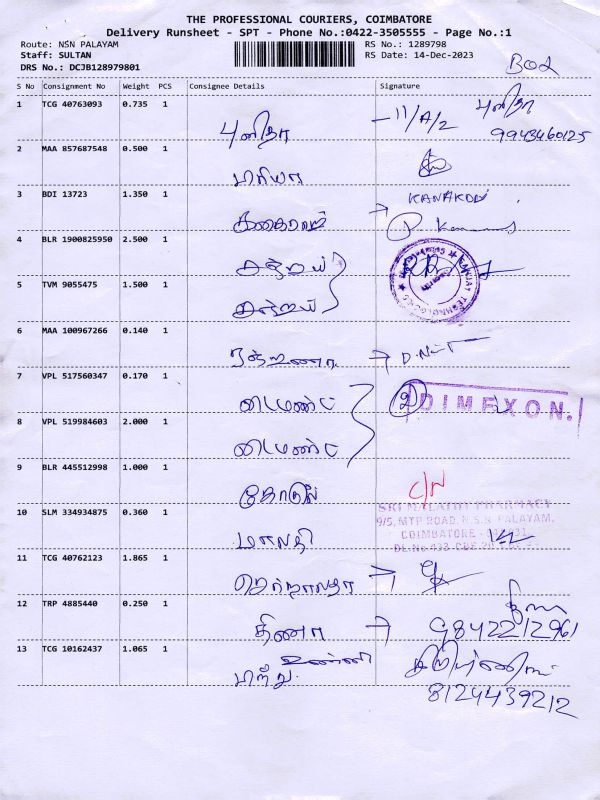 THE PROFESSIONAL COURIERS, COIMBATORE
Delivery Runsheet - SPT - Phone No.:0422-3505555 - Page No.:1
Route: NSN PALAYAM
Staff: SULTAN
DRS No.: DCJB128979801
RS No.: 1289798
RS Date: 14-Dec-2023
S No Consignment No Weight PCS Consignee Details Signature
1 TCG 40763093 0.735 1 புனிதா
11/A/2 புனிதா
9943460125
2 MAA 857687548 0.500 1 மரியா
3 BDI 13723 1.350 1
KANAKAV
4 BLR 1900825950 2.500 1
SANJAY TECHNOLOGIES
5 TVM 9055475 1.500 1
6 MAA 100967266 0.140 1
7 VPL 517560347 0.170 1 டைமண்ட்
2 DIMEXON.
8 VPL 519984603 2.000 1 டைமண்ட்
9 BLR 445512998 1.000 1
C/N
SRI MALATHI PHARMACY
9/5, MTP ROAD, N.S.N. PALAYAM,
COIMBATORE
10 SLM 334934875 0.360 1 மாலதி
11 TCG 40762123 1.865 1
12 TRP 4885440 0.250 1 தினா
9842212961
13 TCG 10162437 1.065 1 உண்ணி
8124439212